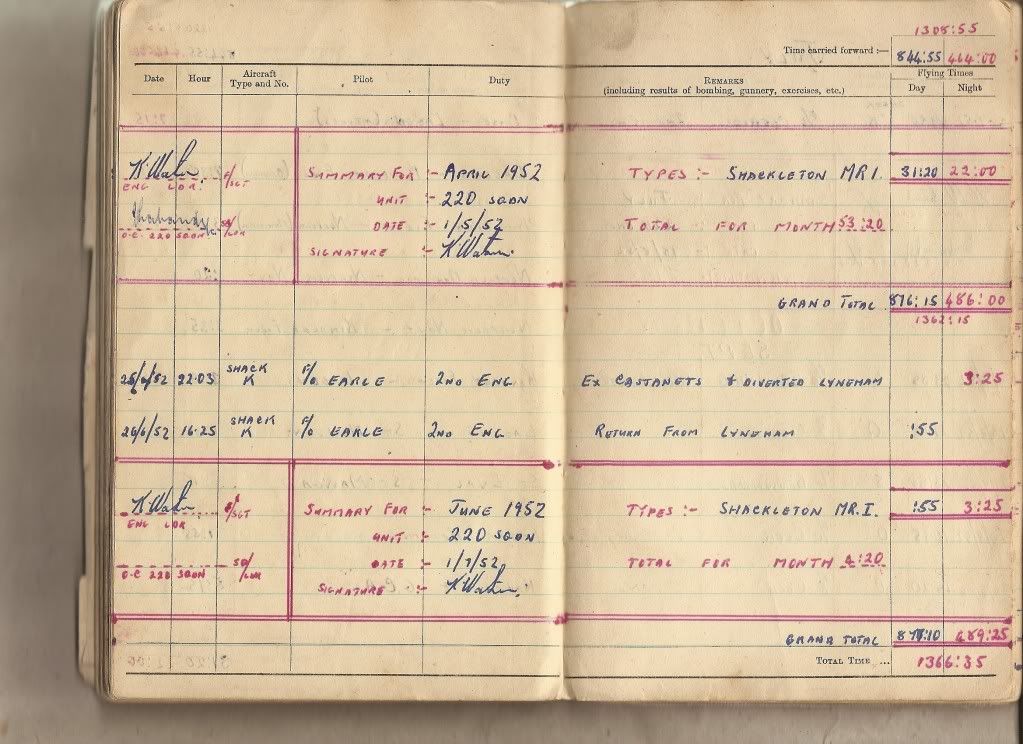 1308:55
Time carried forward :— 844:55 464:00
Date Hour Aircraft Type and No. Pilot Duty REMARKS (including results of bombing, gunnery, exercises, etc.) Flying Times Day Night
K Watson F/SGT SUMMARY FOR :- APRIL 1952 TYPES :- SHACKLETON MR I. 31:20 22:00
ENG LDR.
UNIT :- 220 SQDN
SQ/LDR DATE :- 1/5/52 TOTAL FOR MONTH 53:20
O.C. 220 SQDN
SIGNATURE :- K Watson.
GRAND TOTAL 876:15 486:00
1362:15
25/6/52 22.03 SHACK K F/O EARLE 2ND ENG EX CASTANETS & DIVERTED LYNEHAM 3:25
26/6/52 16.25 SHACK K F/O EARLE 2ND ENG RETURN FROM LYNEHAM :55
K Watson F/SGT SUMMARY FOR :- JUNE 1952 TYPES :- SHACKLETON MR. I. :55 3:25
ENG LDR
UNIT :- 220 SQDN
SQ/LDR DATE :- 1/7/52 TOTAL FOR MONTH 4:20
O.C 220 SQDN
SIGNATURE :- K Watson.
GRAND TOTAL 877:10 489:25
TOTAL TIME ... 1366:35